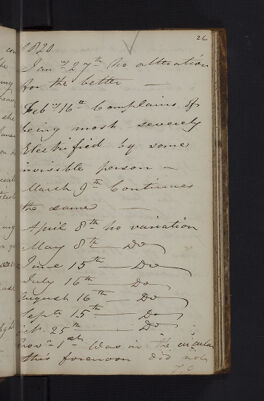 26
1820.
Jany 27th No alteration
for the better —
Feby 16th Complains of
being most severely
Electrified by some
invisible person —
March 9th Continues
the same —
April 8th no variation
May 8th — Do
June 15th — Do
July 16th — Do
August 16th — Do
Septr 15th — Do
25th — Do
Novr 1st Was in the
this forenoon did not